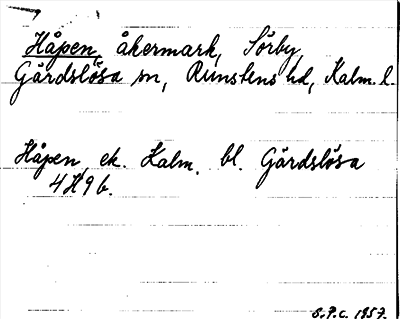 Håpen, åkermark, Sörby,
Gårdslösa sn, Runstens hd, Kalm. l.
Håpen, ek. Kalm. bl. Gårdslösa
4H9b.
S.P.C. 1957.